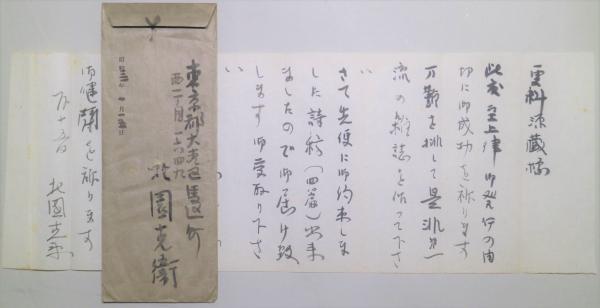 更科源蔵様
此度至上律御発行の由
切に御成功を祈ります
万難を排して是非一
流の雑誌を作って下さ
い
さて先便に御約束しま
した詩稿(四篇)出来
ましたので御届け致
します 御受取り下さ
い
東京都大田区馬込町
西一丁目一六四九
北園克衛
昭和 年 月 日
御健闘を祈ります
十五日 北園克衛